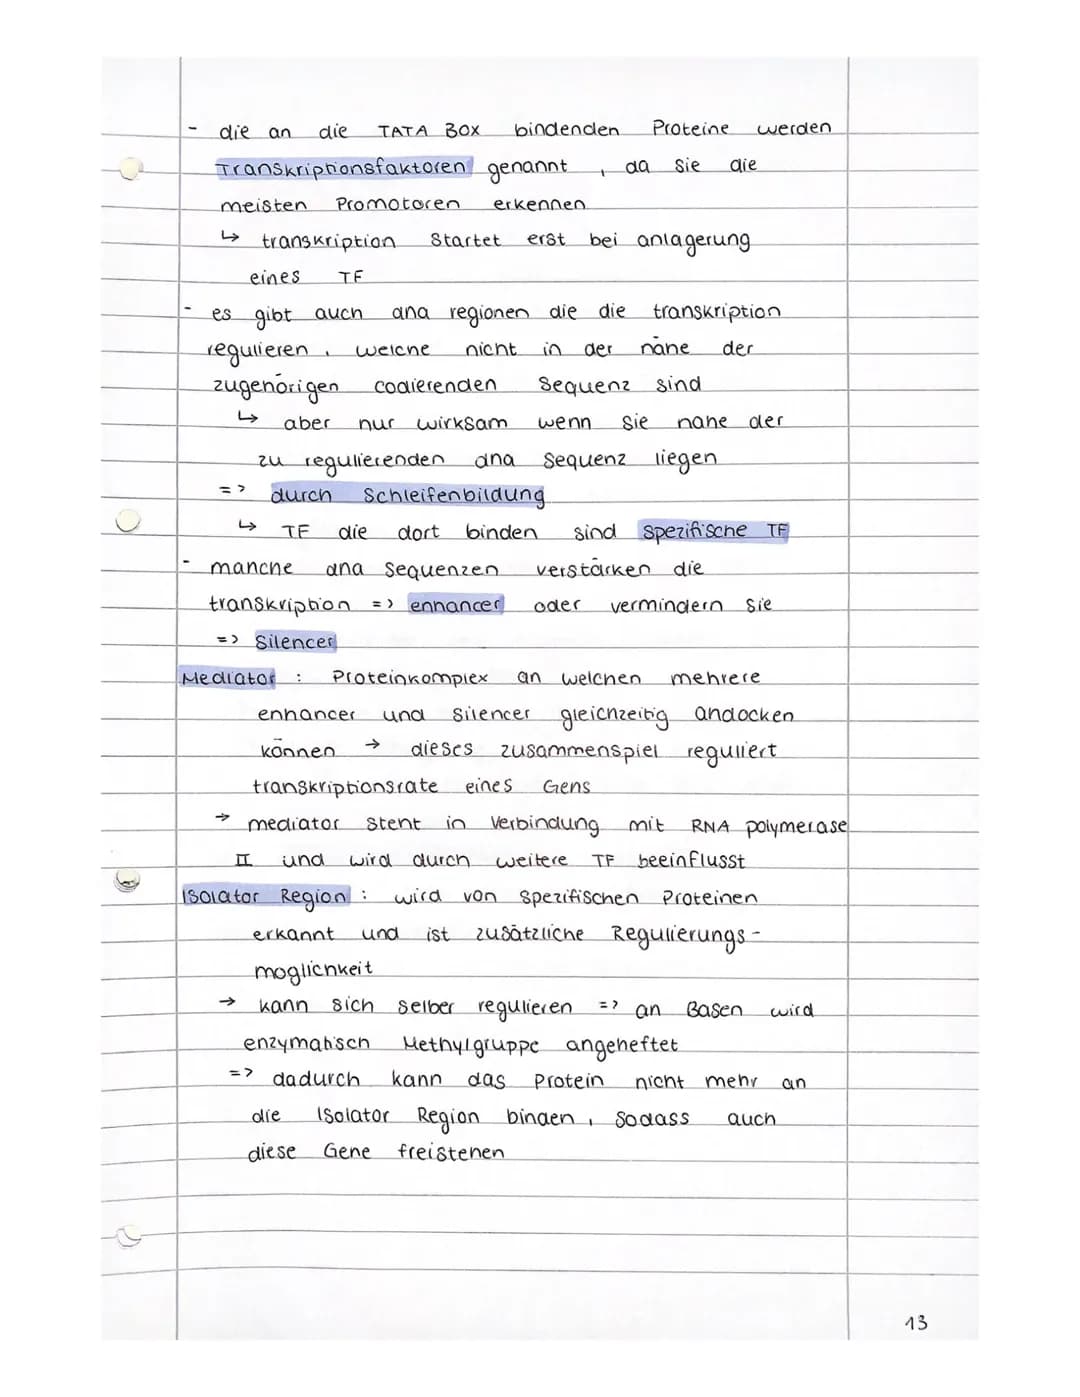 - die an die TATA Box bindenden Proteine werden
Transkriptionsfaktoren genannt, da sie die
meisten Promotoren erkennen
↳ transkription startet erst bei anlagerung
eines TF
- es gibt auch dna regionen die die transkription
regulieren, welche nicht in der nähe der
zugehörigen codierenden Sequenz sind
↳ aber nur wirksam wenn sie nahe der
zu regulierenden dna Sequenz liegen
=> durch Schleifenbildung
↳ TF die dort binden sind spezifische TF
- manche dna Sequenzen verstärken die
transkription => enhancer oder vermindern sie
=> Silencer
Mediator : Proteinkomplex an welchen mehrere
enhancer und Silencer gleichzeitig andocken
können → dieses zusammenspiel reguliert
transkriptionsrate eines Gens
→ mediator steht in Verbindung mit RNA polymerase
II und wird durch weitere TF beeinflusst
Isolator Region : wird von spezifischen Proteinen
erkannt und ist zusätzliche Regulierungs-
moglichkeit
→ kann sich selber regulieren => an Basen wird
enzymatisch Methylgruppe angeheftet
=> dadurch kann das Protein nicht mehr an
die Isolator Region binden, sodass auch
diese Gene freistehen
13